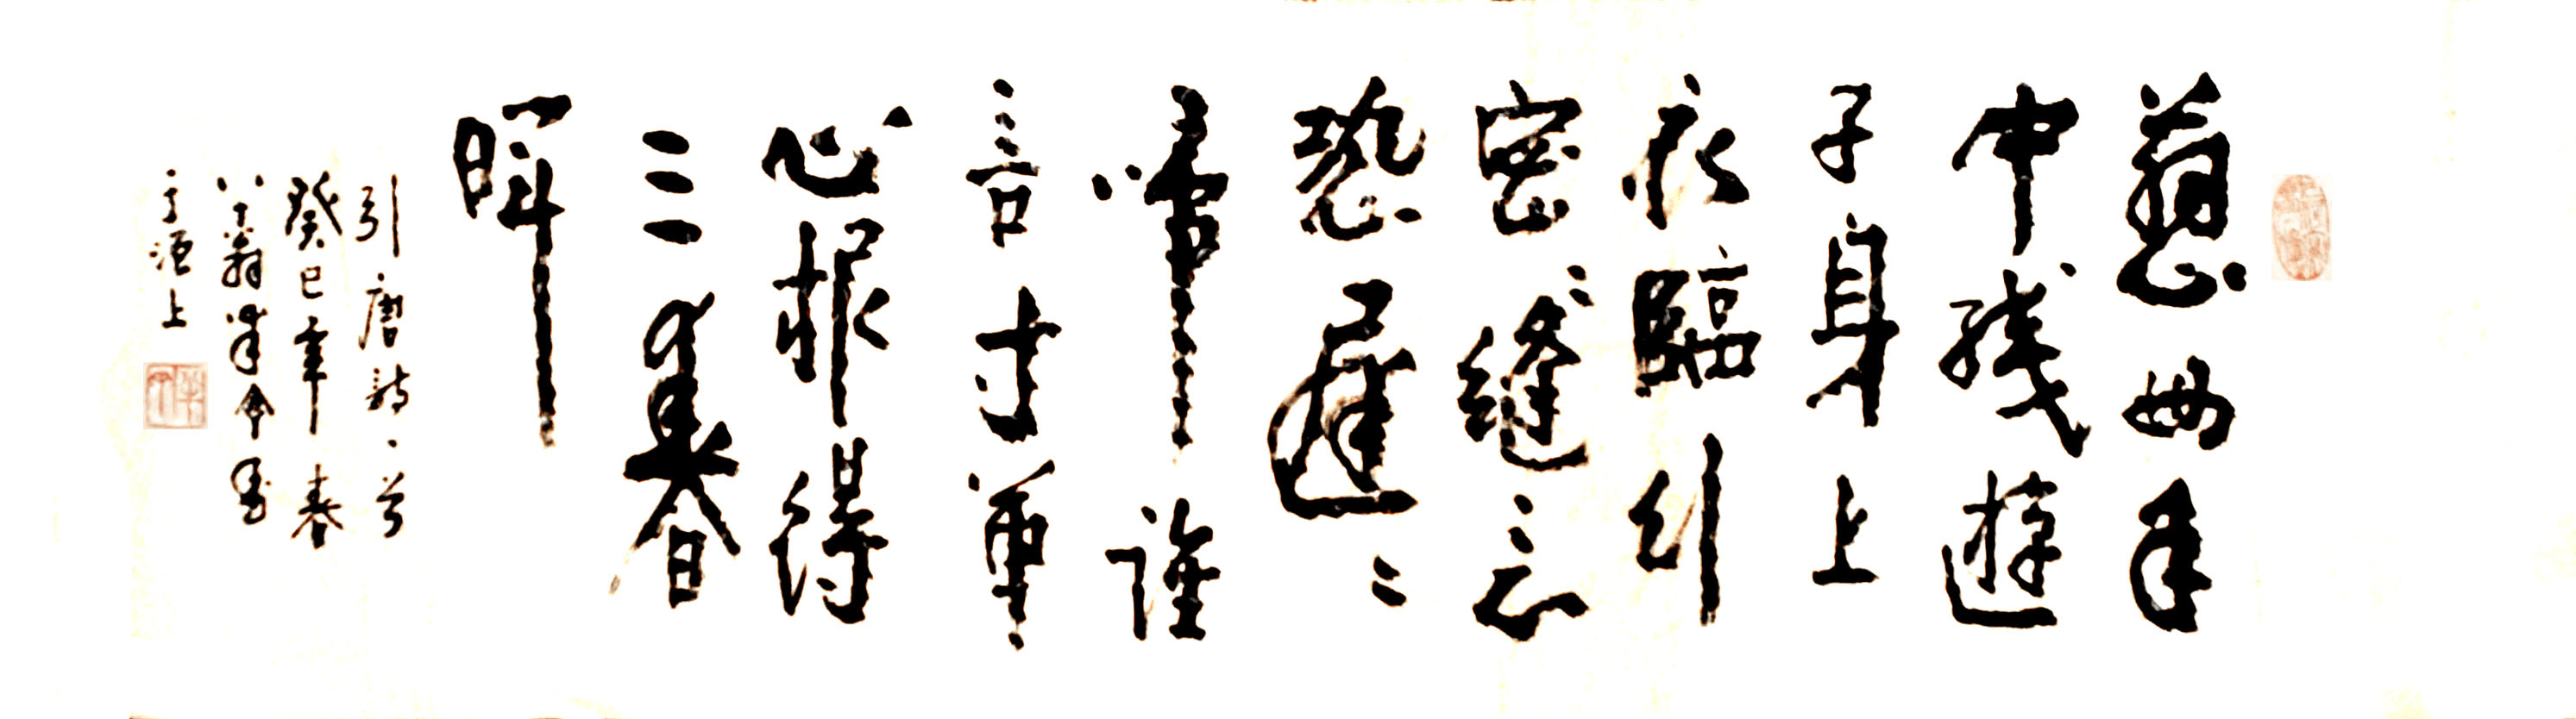 慈母手
中綫遊
子身上
衣臨行
密〻縫意
恐遲〻
歸誰
言寸草
心報得
三春
暉
引唐詩一首
癸巳年春
八十翁書
于上